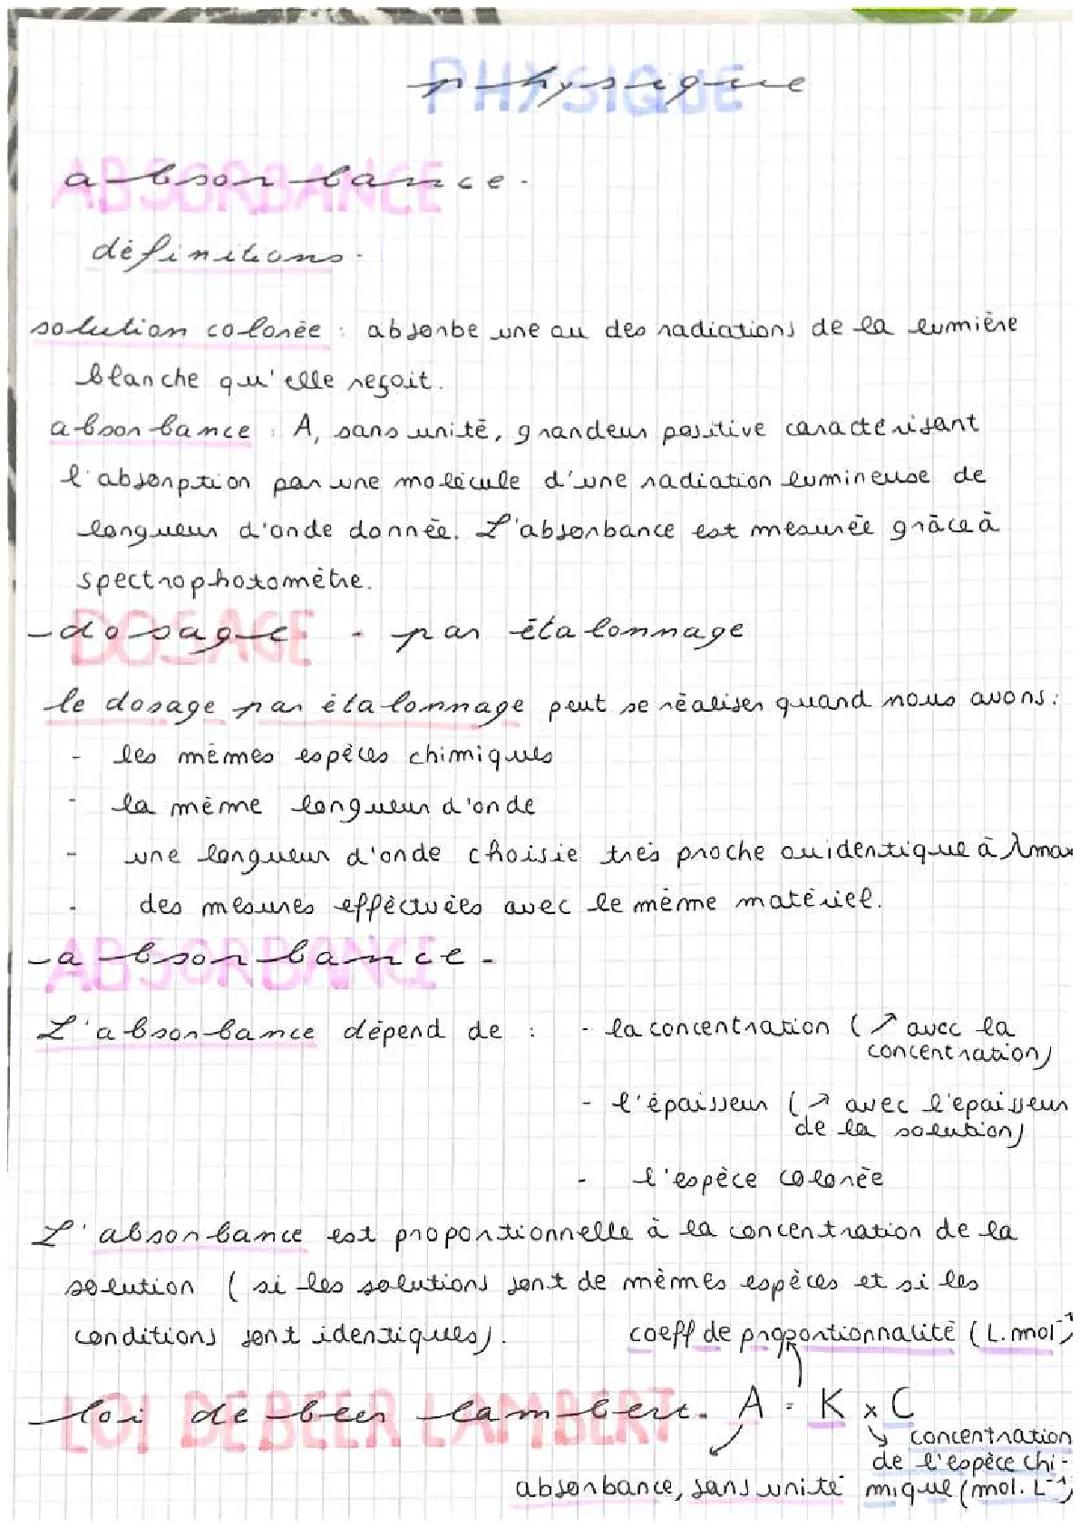 PHYSIQUE
physique
ABSORBANCE
absorbance.
définitions.
solution colorée : absorbe une ou des radiations de la lumière
blanche qu'elle reçoit.
absorbance : A, sans unité, grandeur positive caractérisant
l'absorption par une molécule d'une radiation lumineuse de
longueur d'onde donnée. L'absorbance est mesurée grâce à
spectrophotomètre.
DOSAGE
- dosage - par étalonnage
le dosage par étalonnage peut se réaliser quand nous avons :
- les mêmes espèces chimiques
- la même longueur d'onde
- une longueur d'onde choisie très proche ou identique à λmax
- des mesures effectuées avec le même matériel.
ABSORBANCE
- absorbance -
L'absorbance dépend de : - la concentration (↗ avec la
concentration)
- l'épaisseur (↗ avec l'épaisseur
de la solution)
- l'espèce colorée
L'absorbance est proportionnelle à la concentration de la
solution (si les solutions sont de mêmes espèces et si les
conditions sont identiques).
coeff de proportionnalité (L.mol⁻¹)
LOI DE BEER LAMBERT
- loi de beer lambert. A = K x C
concentration
de l'espèce chi-
absorbance, sans unité
mique (mol. L⁻¹)